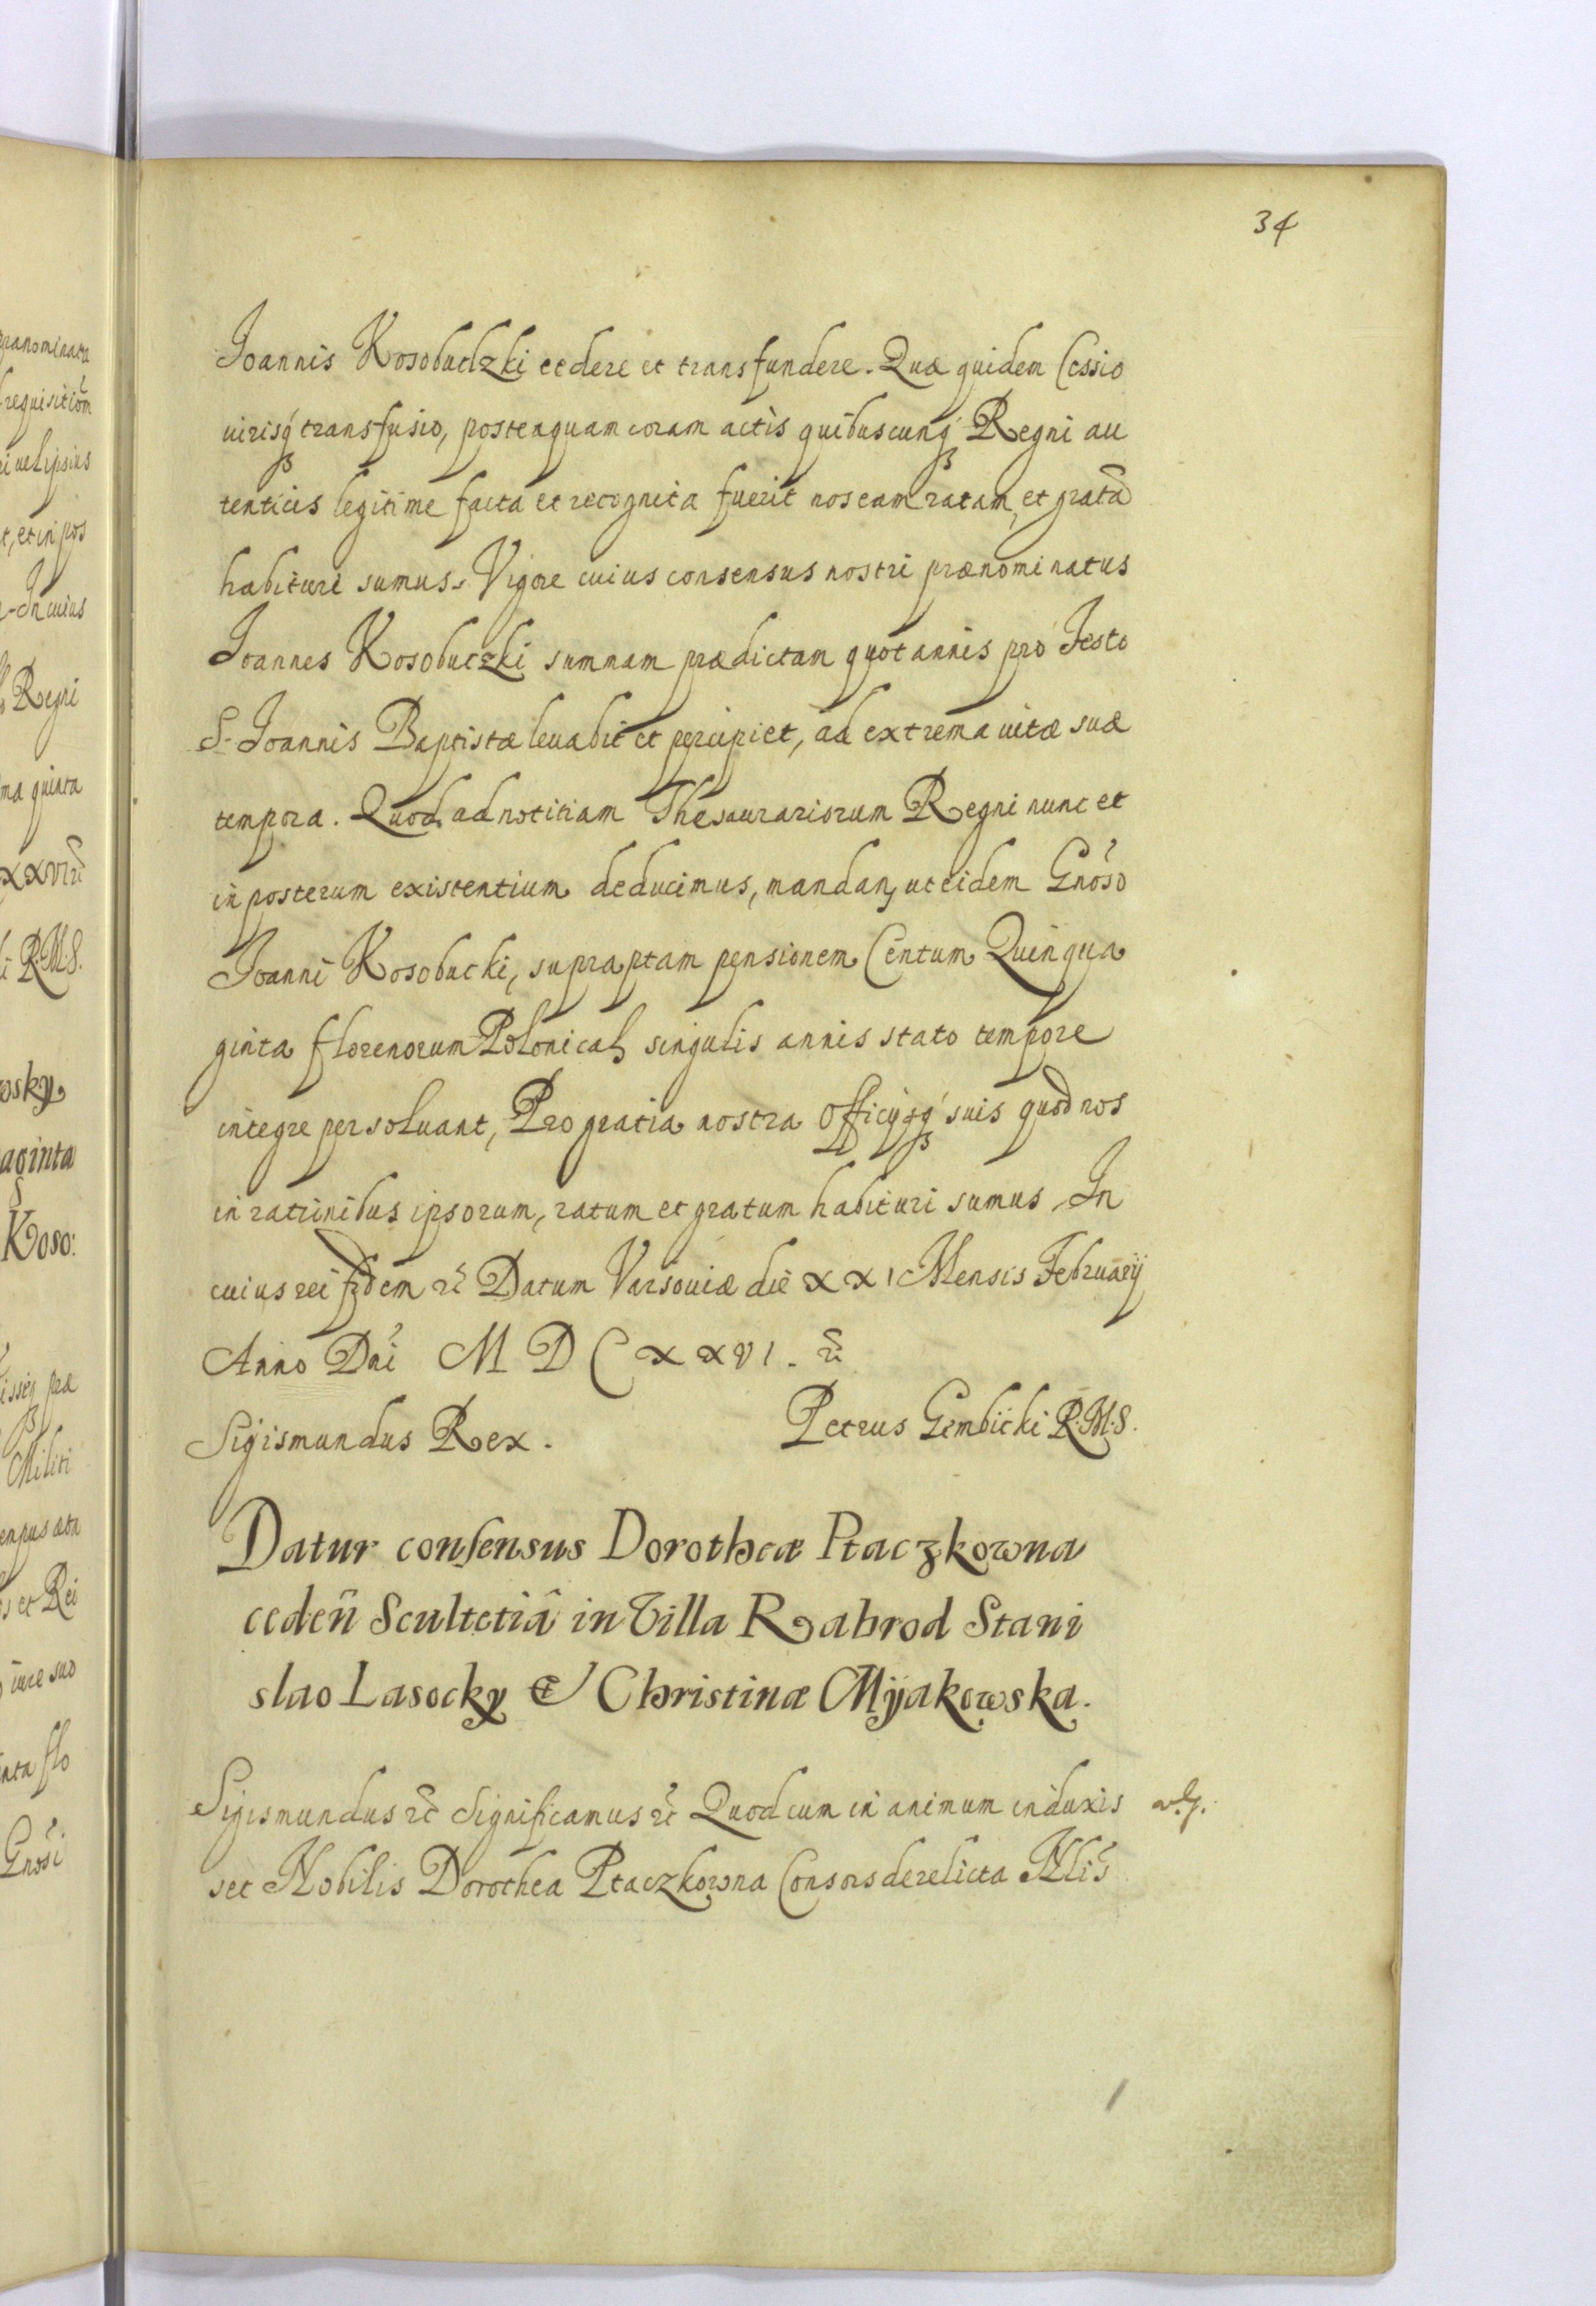 34
Joannis Kosobudzki cedere et transfundere. Quæ quidem Cessio
iurisq́ transfusio, posteaquam coram actis quibuscunq́ Regni au
tenticis legitime facta et recognita fuerit nos eam ratam, et gratã
habituri sumus. Vigore cuius consensus nostri prænominatus
Joannes Kosobuczki summam prædictam quotannis pro Festo
S. Joannis Baptistæ leuabit et percipiet, ad extrema uitæ suæ
tempora. Quod ad notitiam Thesaurariorum Regni nunc et
in posterum existentium deducimus, mandan, ut eidem Gnoso
Joanni Kosobucki, supraptam pensionem Centum Quinqua
ginta florenorum Polonical singulis annis stato tempore
integre persoluant, Pro gratia nostra Officÿsq́ suis quod nos
in rationibus ipsorum, ratum et gratum habituri sumus. In
cuius rei fidem rc̃ Datum Varsouiæ die XXI Mensis Februarij
Anno Dni M D C XXVI. rc̃
Sigismundus Rex. Petrus Gembicki R.M.S.
Datur consensus Dorotheæ Ptaczkowna
cedeñ Scultetiâ in Villa Rabrod Stani
slao Lasocky et Christinæ Mÿakowska.
Sigismundus rc̃ Significamus rc̃ Quod cum in animum induxis
set Nobilis Dorothea Ptaczkowna Consors derelicta Nlis